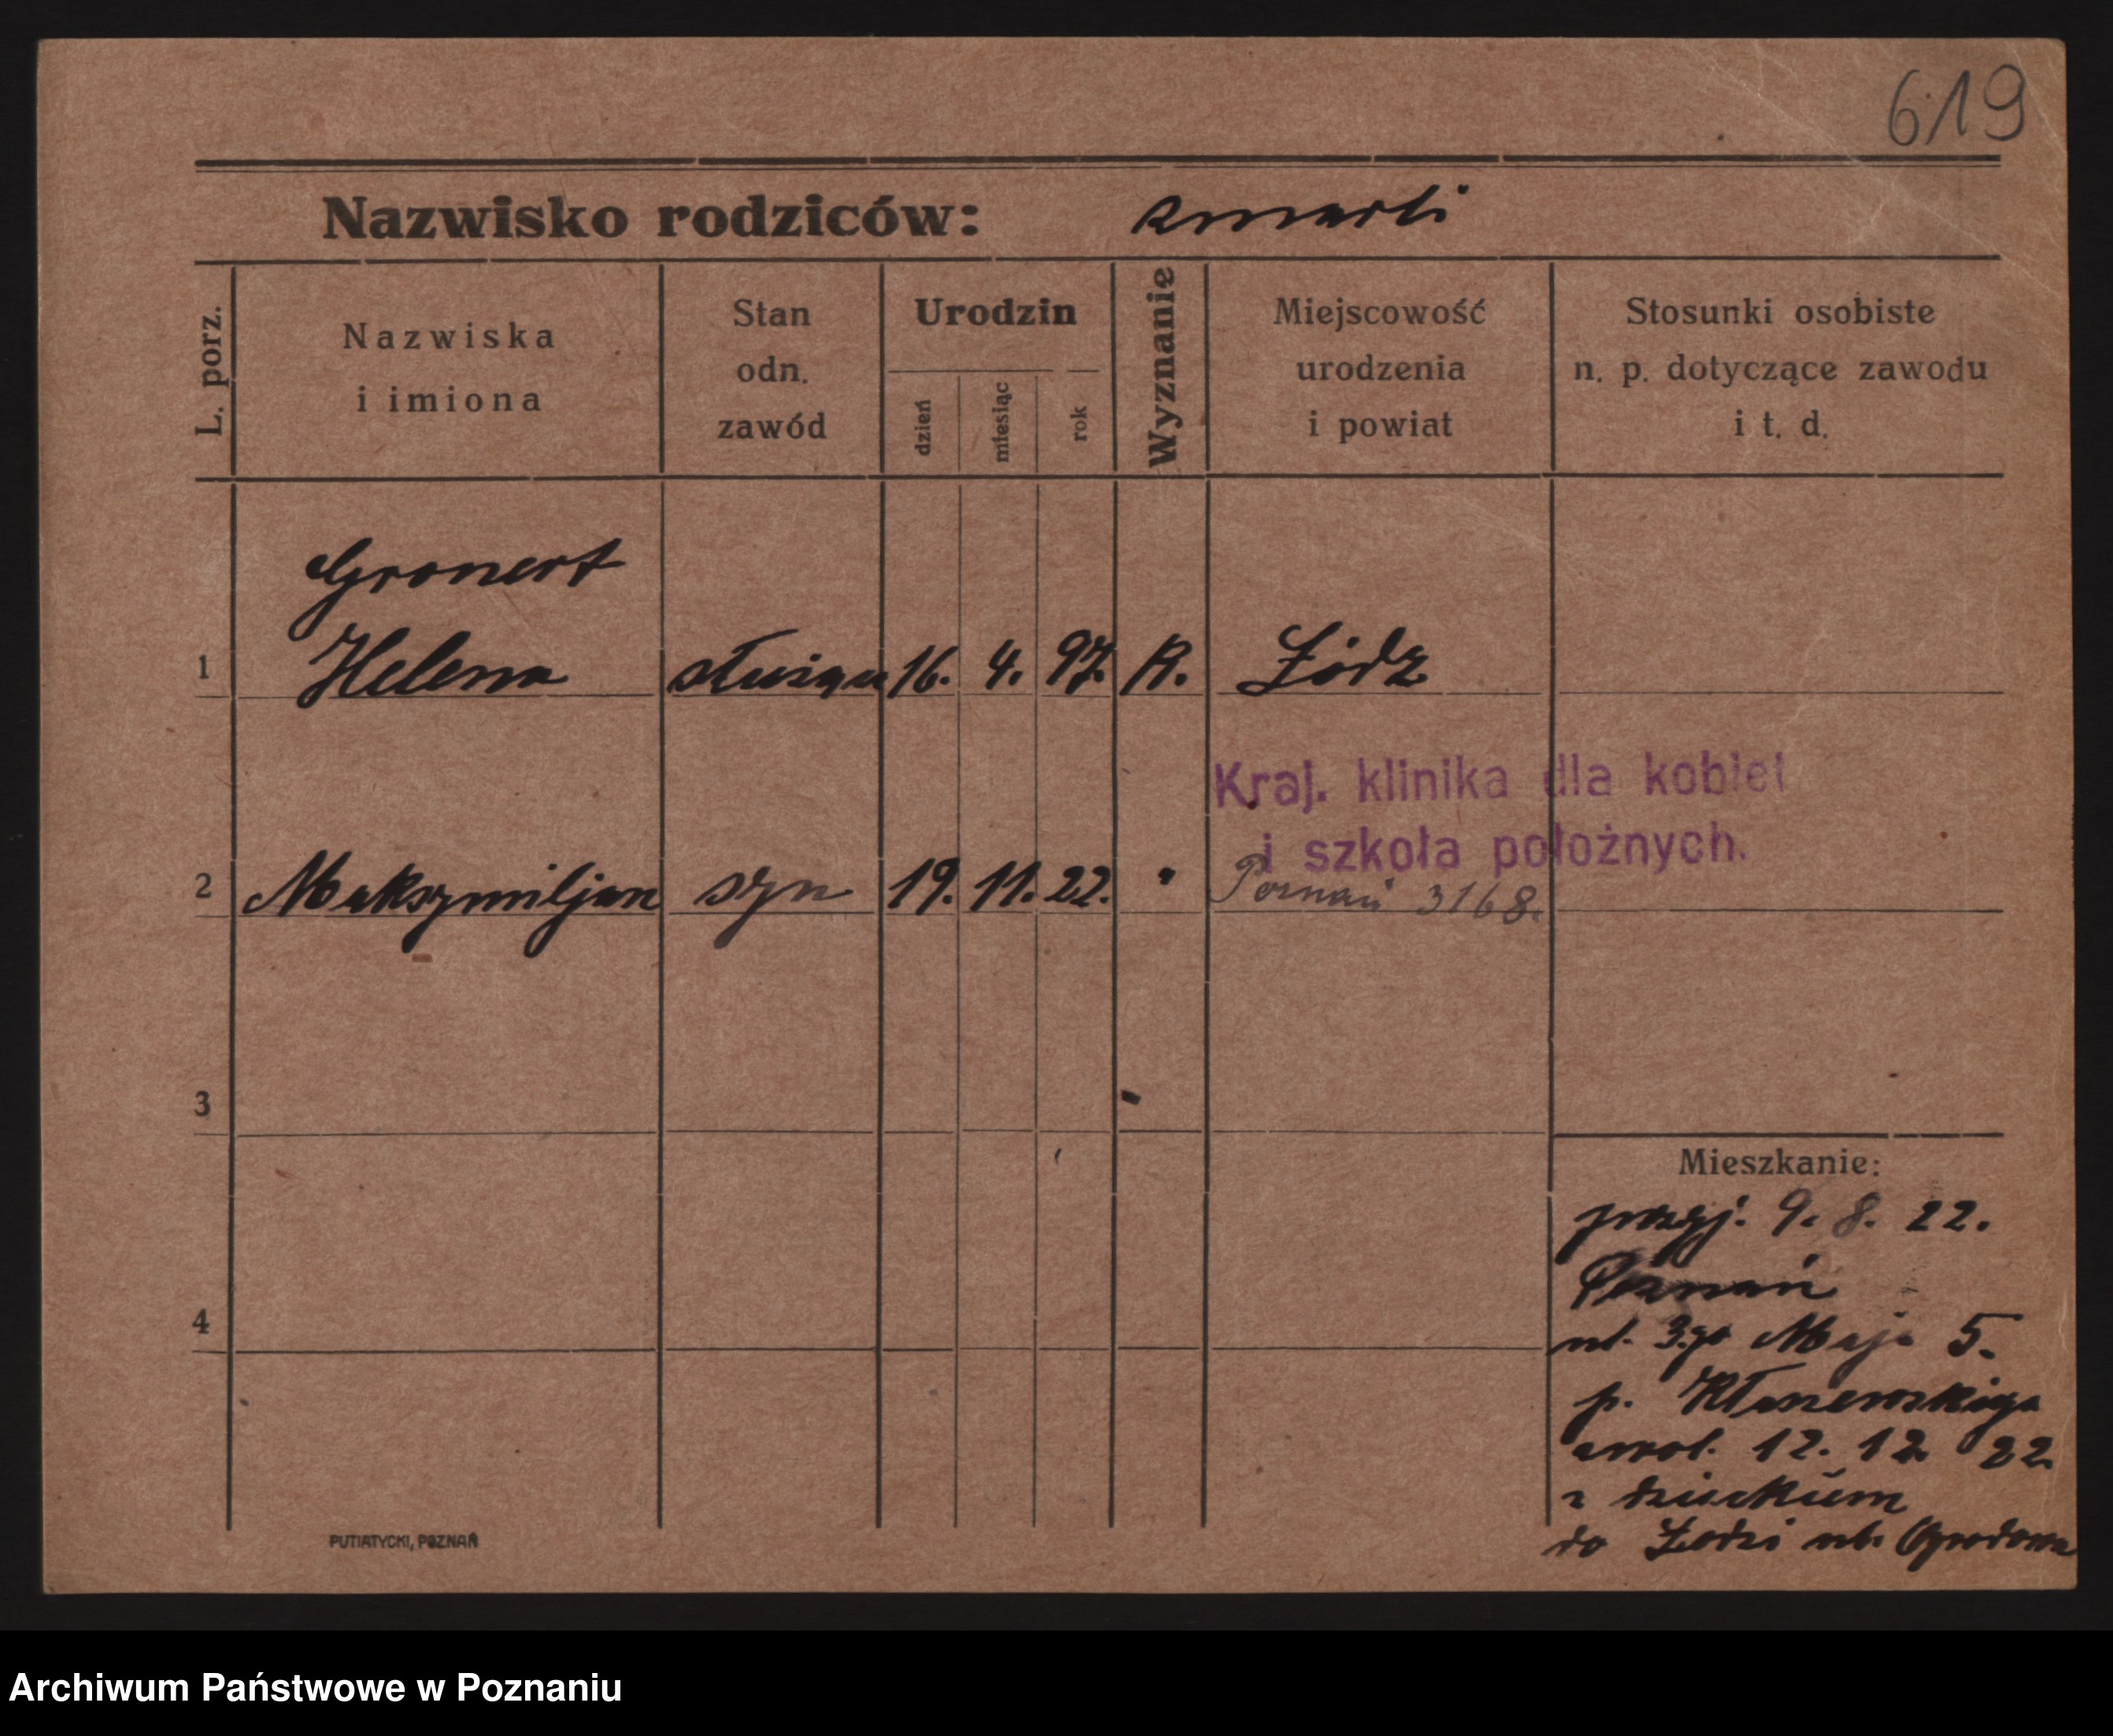 619
Nazwisko rodziców: zmarli
L. porz.
Nazwiska
i imiona
Stan
odn.
zawód
Urodzin
dzień
miesiąc
rok
Wyznanie
Miejscowość
urodzenia
i powiat
Stosunki osobiste
n. p. dotyczące zawodu
i t. d.
Gronert
1 Helena służąca 16. 4. 97. R. Łódz
Kraj. klinika dla kobiet
i szkoła położnych.
2 Maksymiljan syn 19. 11. 22. " Poznań 3168.
3
4
Mieszkanie:
przyj. 9. 8. 22.
Poznań
ul. 3.go Maja 5.
p.
12. 12 22
z dzieckiem
do Łodzi ul. Ogrodowa
PUTIATYCKI, POZNAŃ
Archiwum Państwowe w Poznaniu